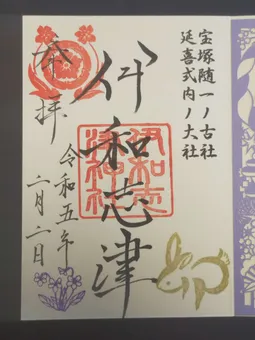 宝塚随一ノ古社
延喜式内ノ大社
奉拝
伊和志津
伊和志津神社
令和五年
二月二日
卯